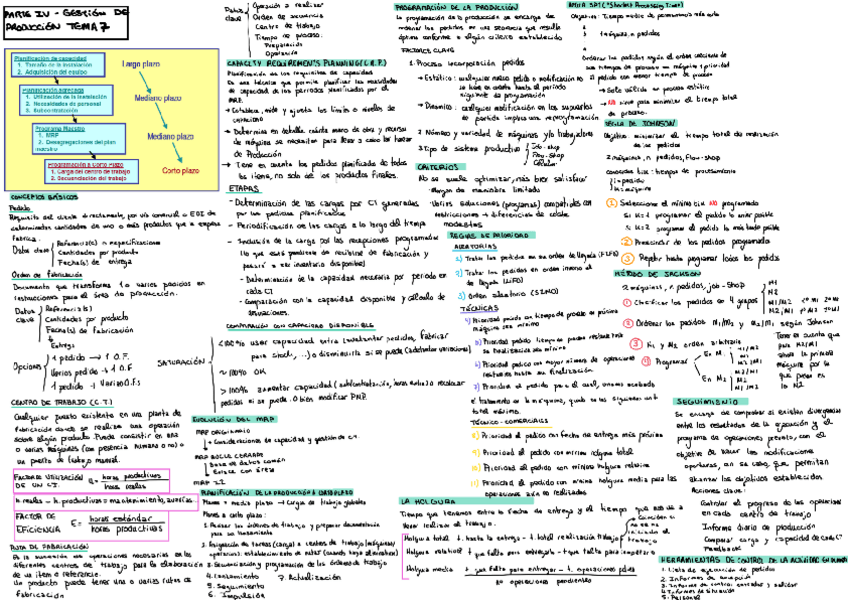 PARTE IV - GESTIÓN DE
PRODUCCIÓN TEMA 7
Planificación de capacidad
1. Tamaño de la instalación
2. Adquisición del equipo
Largo plazo
Planificación agregada
1. Utilización de la instalación
2. Necesidades de personal
3. Subcontratación
Mediano plazo
Programa Maestro
1. MRP
2. Desagregaciones del plan
maestro
Mediano plazo
Programación a Corto Plazo
1. Carga del centro de trabajo
2. Secuenciación del trabajo
Corto plazo
CONCEPTOS BÁSICOS
Pedido
Requisito del cliente directamente, por vía comercial o EDI de
determinadas cantidades de uno o más productos que
fábrica.
Datos clave
Referencia(s) o especificaciones
Cantidades por producto
Fecha(s) de entrega
Orden de fabricación
Documento que transforma 1 o varios pedidos en
instrucciones para el área de producción.
Datos
clave
Referencia(s)
Cantidades por producto
Fecha(s) de fabricación
Entrega
Opciones
1 pedido → 1 O.F.
Varios pedidos → 1 O.F
1 pedido → Varias O.F.s
CENTRO DE TRABAJO (C.T.)
Cualquier puesto existente en una planta de
fabricación donde se realiza una operación
sobre algún producto. Puede consistir en una
o varias máquinas (con presencia humana o no) o
un puesto de trabajo manual.
FACTOR UTILIZACIÓN
DE UN C.T.
= horas productivas
horas reales
h. reales - h. productivas = mantenimiento, averías
FACTOR DE
EFICIENCIA
E = horas estándar
horas productivas
RUTA DE FABRICACIÓN
Es la sucesión de operaciones necesarias en los
diferentes centros de trabajo para la elaboración
de un item o referencia.
Un producto puede tener una o varias rutas de
fabricación
Datos
clave
Operación a realizar
Orden de secuencia
Centro de trabajo
Tiempo de proceso:
Preparación
Operación
CAPACITY REQUIREMENTS PLANNING (C.R.P.)
Planificación de los requisitos de capacidad.
Es una técnica que permite planificar las necesidades
de capacidad de los periodos planificados por el
MRP.
→ Establece, mide y ajusta los límites o niveles de
capacidad
→ Determina en detalle cuánta mano de obra y recursos
de máquina se necesitan para llevar a cabo las tareas
de Producción
→ Tiene en cuenta los pedidos planificados de todos
los items, no solo de los productos finales.
ETAPAS
- Determinación de las cargas por CT generadas
por los pedidos planificados
- Periodificación de las cargas a lo largo del tiempo
- Inclusión de la carga por las recepciones programadas
(lo que está pendiente de recibirse de fabricación y
pasará a ser inventario disponible)
- Determinación de la capacidad necesaria por periodo en
cada CT
- Comparación con la capacidad disponible y cálculo de
desviaciones.
COMPARACIÓN CON CAPACIDAD DISPONIBLE
SATURACIÓN
<100%
≈ 100% OK
>100%
EVOLUCIÓN DEL MRP
MRP ORIGINARIO
+ Consideraciones de capacidad y gestión de CT.
MRP BUCLE CERRADO
Base de datos común
Enlace con área
MRP II
PLANIFICACIÓN DE LA PRODUCCIÓN A CORTO PLAZO
Planes a medio plazo → Cargas de trabajo globales
Planes a corto plazo:
1. Revisar las órdenes de trabajo y preparar documentación
para su lanzamiento
2. Asignación de tareas (cargas) a centros de trabajo
3. Secuenciación y programación de las órdenes de trabajo
4. Lanzamiento
5. Seguimiento
6. Impulsión
7. Actualización
PROGRAMACIÓN DE LA PRODUCCIÓN
La programación de la producción se encarga de
ordenar los pedidos en una secuencia que resulte
óptima conforme a algún criterio establecido
FACTORES CLAVE
1. Proceso incorporación pedidos
→ Estático: cualquier nuevo pedido o modificación no
se tiene en cuenta hasta el periodo
siguiente de programación
→ Dinámico: cualquier modificación en los supuestos
de partida implica una reprogramación
2. Número y variedad de máquinas y/o trabajadores
3. Tipo de sistema productivo
Job-shop
Flow-shop
CRITERIOS
No se suele optimizar, más bien satisfacer
Rango de maniobra limitado
Varias soluciones (programas) compatibles con
restricciones → diferencias de coste
modestas
REGLAS DE PRIORIDAD
ALEATORIAS
1) Tratar los pedidos en su orden de llegada (FIFO)
2) Tratar los pedidos en orden inverso al
de llegada (LIFO)
3) Orden aleatorio (SIRO)
TÉCNICAS
4) Prioridad pedido con tiempo de proceso en próxima
máquina sea mínimo
6) Prioridad pedido con mayor número de operaciones
restantes hasta su finalización
TÉCNICO-COMERCIALES
8) Prioridad al pedido con fecha de entrega más próxima
9) Prioridad al pedido con mínima holgura total
10) Prioridad al pedido con mínima holgura relativa
11) Prioridad al pedido con mínima holgura media para las
operaciones aún no realizadas
LA HOLGURA
Tiempo que tenemos entre la fecha de entrega y el tiempo que
llevar realizar el trabajo.
Holgura total = t. hasta la entrega - t. total realización trabajo
Holgura relativa = t que falta para entregarlo
Holgura media = t que falta para entregar - t. operaciones pdtes
nº operaciones pendientes
REGLA SPT ("Shortest Processing Time")
Objetivo: Tiempo medio de permanencia más corto
1 máquina, n pedidos
Ordenar los pedidos según el orden creciente de
sus tiempos de proceso en máquina: prioridad
al pedido con menor tiempo de proceso
→ Solo válida en proceso estático
→ NO sirve para minimizar el tiempo total
de proceso.
REGLA DE JOHNSON
Objetivo: minimizar el tiempo total de realización
de los pedidos
2 máquinas, n pedidos, Flow-shop
Conocidos tik: tiempos de procesamiento
i = pedido
k = máquina
1 Seleccione el mínimo tik NO programado
Si k=1 programar el pedido lo antes posible
Si k=2 programar el pedido lo más tarde posible
2 Prescindir de los pedidos programados
3 Repetir hasta programar todos los pedidos
MÉTODO DE JACKSON
2 máquinas, n pedidos, job-shop
1 Clasificar los pedidos en 4 grupos
M1
M2
M1/M2 1º M1 2º M2
M2/M1 1º M2 2º M1
2 Ordenar los pedidos M1/M2 y M2/M1 según Johnson
3 M1 y M2 orden arbitrario
4 Programar
En M1
M1/M2
M1
M2/M1
En M2
M2/M1
M2
M1/M2
SEGUIMIENTO
Se encarga de comprobar si existen divergencias
entre los resultados de la ejecución y el
programa de operaciones previsto, con el
objetivo de llevar las modificaciones
oportunas, en su caso, que permitan
alcanzar los objetivos establecidos.
Acciones clave:
Controlar el progreso de las operaciones
en cada centro de trabajo
Informe diario de producción
Comparar carga y capacidad de cada CT
Feedback
HERRAMIENTAS DE CONTROL DE LA ACTIVIDAD
1. Lista de ejecución de pedidos
4. Informes de situación